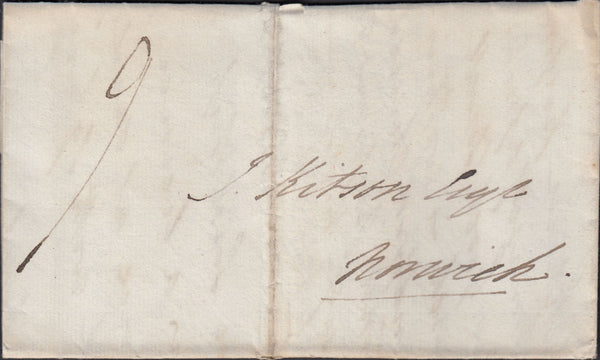 9
J. Kitson Esqr
Norwich.